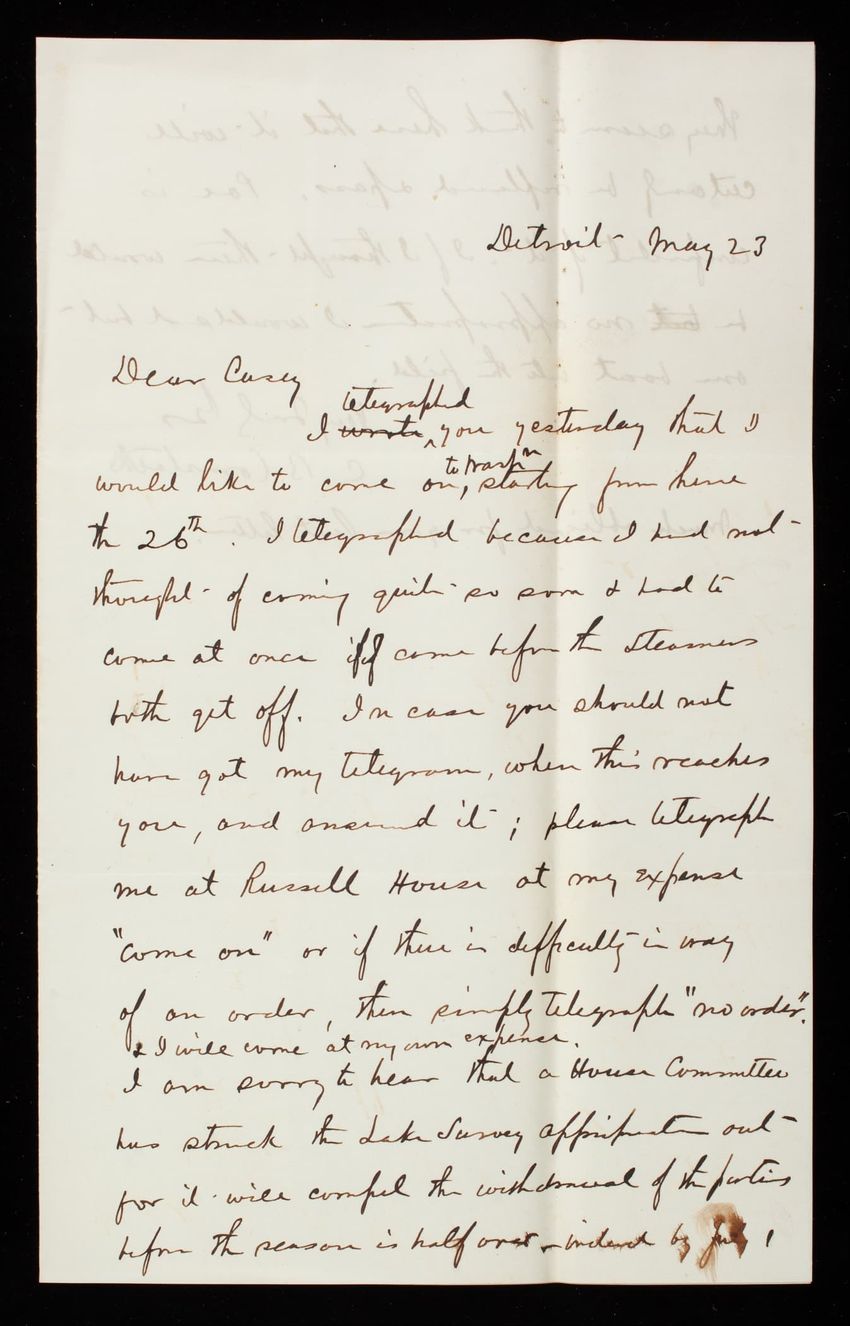 Detroit May 23
Dear Casey
telegraphed
I wrote you yesterday that I
to Washn
would like to come on, starting from here
the 26th. I telegraphed because I had not
thought of coming quite so soon & had to
come at once if I came before the steamers
both get off. In case you should not
have got my telegram, when this reaches
you, and answered it; please telegraph
me at Russell House at my expense
"come on" or if there is difficulty in way
of an order, then simply telegraph "no order".
& I will come at my own expense.
I am sorry to hear that a House Committee
has struck the Lake Survey appropriation out
for it will compel the withdrawal of the parties
before the season is half over - indeed by July 1